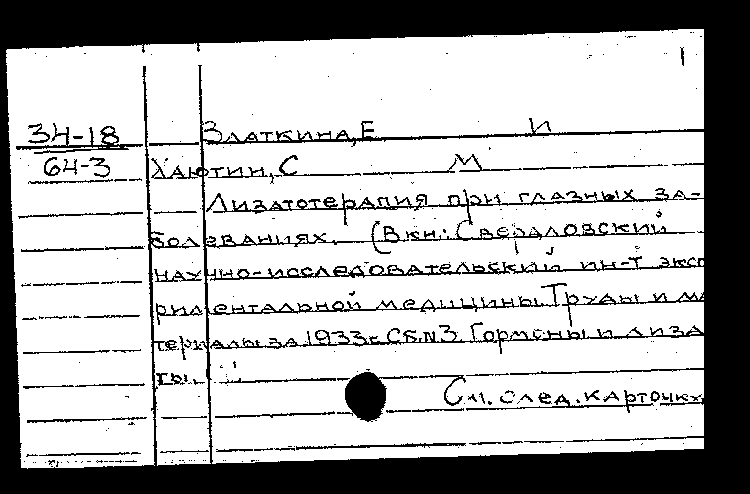 1
34-18 Златкина, Е И
64-3 Хаютин, С М
Лизатотерапия при глазных за-
болеваниях. (В кн: Свердловский
научно-исследовательский ин-т эксп
риментальной медицины. Труды и ма
териалы за 1933 г. Сб. №3 Гормоны и лиза
ты.
См. след. карточку